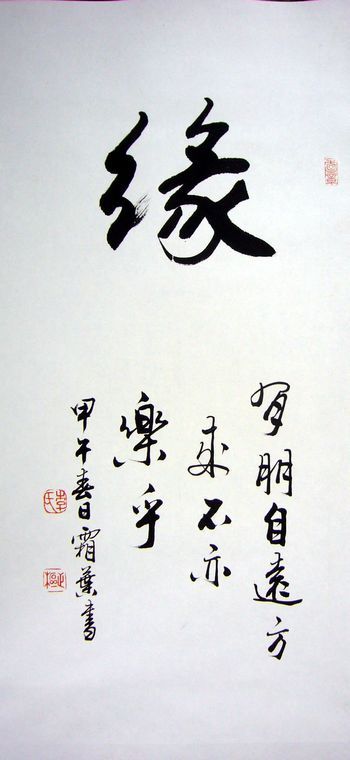 缘
有朋自遠方
來不亦
樂乎
甲午春日霜葉書
李氏